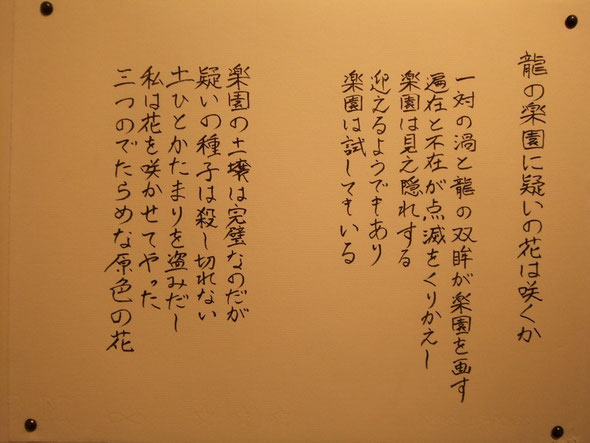 龍の楽園に疑いの花は咲くか
一対の渦と龍の双眸が楽園を画す
遍在と不在が点滅をくりかえし
楽園は見え隠れする
迎えるようでもあり
楽園は試してもいる
楽園の土壌は完璧なのだが
疑いの種子は殺し切れない
土ひとかたまりを盗みだし
私は花を咲かせてやった
三つのでたらめな原色の花